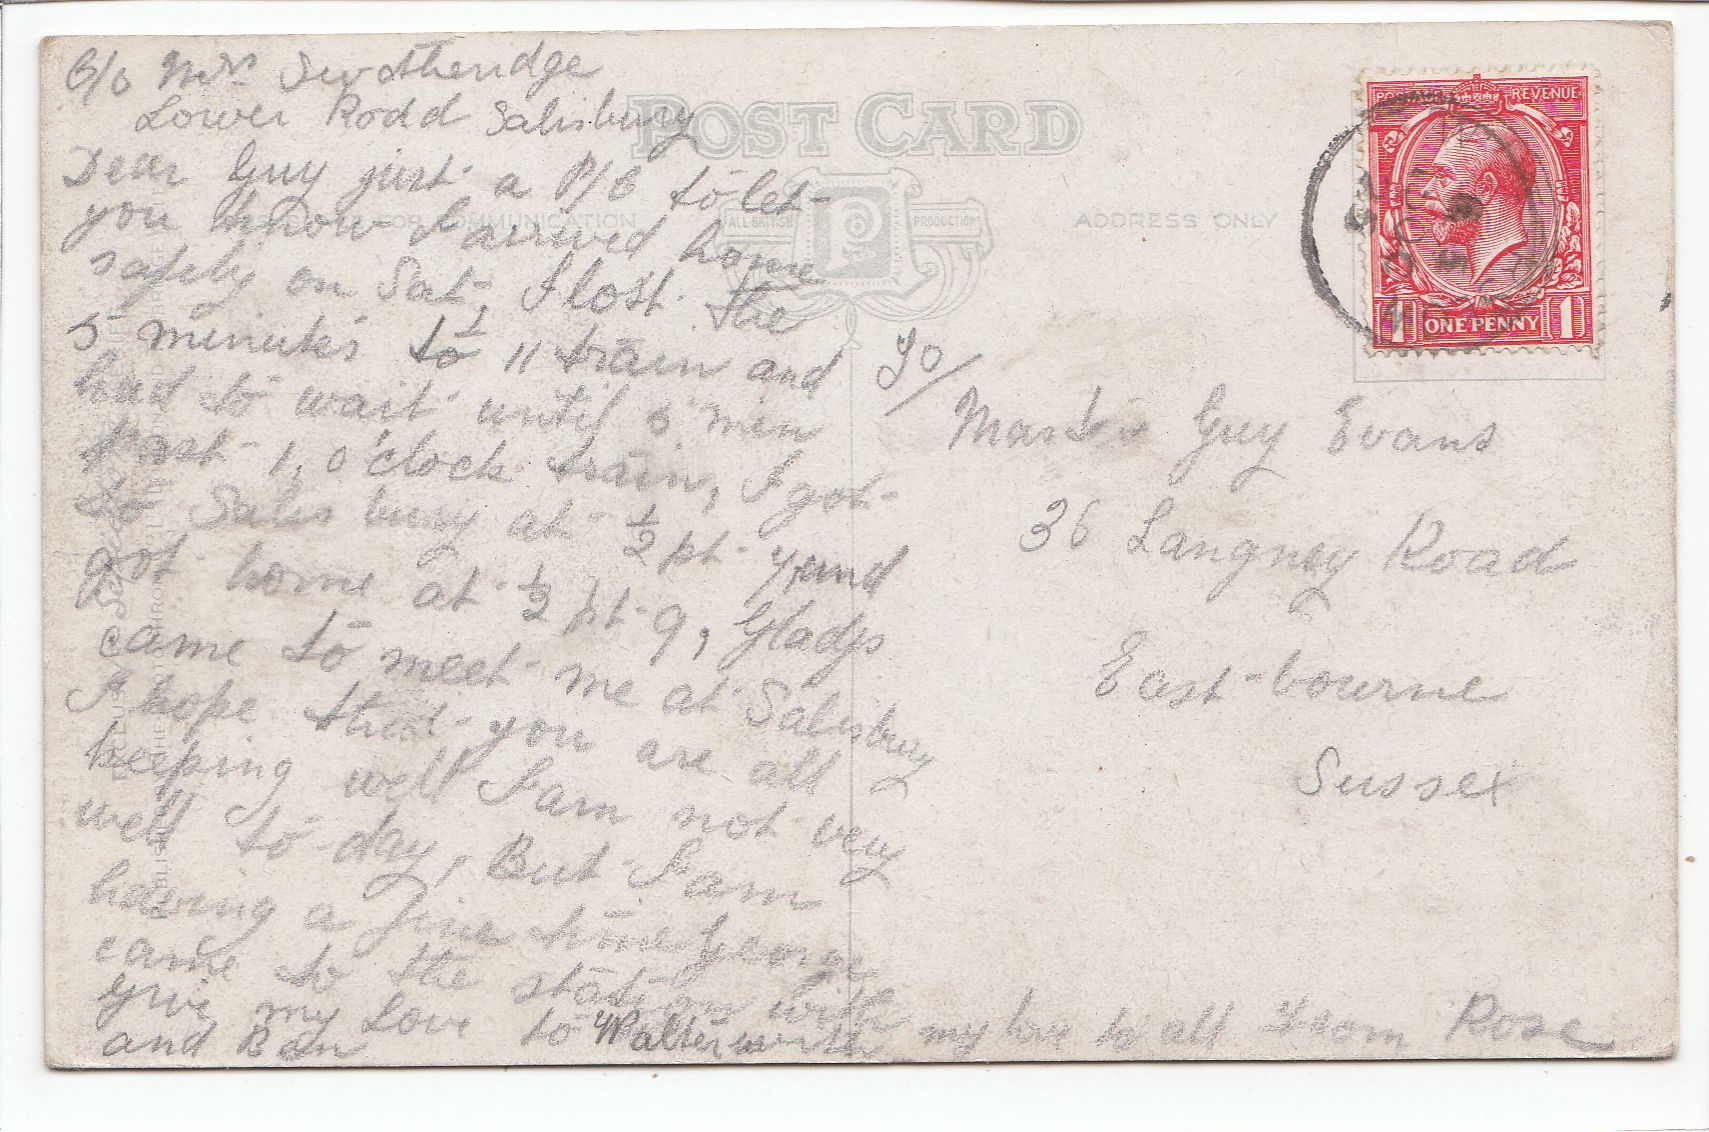 C/o Mrs Swotheridge
Lower Rodd Salisbury
Dear Guy just a P/C to let
you know I arrived home
safely on Sat, I lost the
5 minutes to 11 train and
had to wait until 5 min
past 1, o'clock train, I got
to Salisbury at ½ pt 4, and
got home at ½ pt 9, Gladys
came to meet me at Salisbury
I hope that you are all
keeping well I am not very
well to day, But I am
having a fine time George
came to the station with
give my Love to Walter with my love to all from Rose
and Ban
POST CARD
FOR COMMUNICATION
ALL BRITISH
P
PRODUCTION
ADDRESS ONLY
POSTAGE REVENUE
1 ONE PENNY 1
To/
Master Guy Evans
36 Langney Road
East-bourne
Sussex